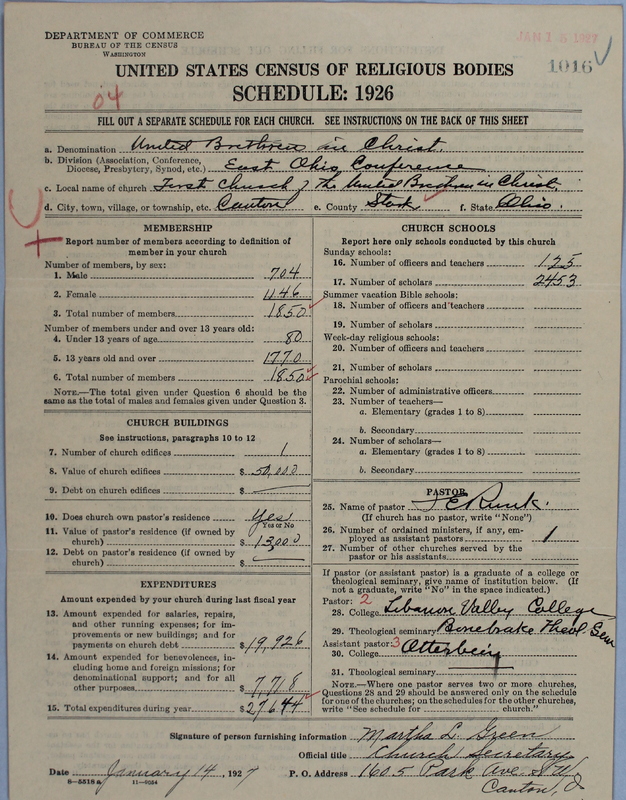 DEPARTMENT OF COMMERCE
BUREAU OF THE CENSUS
WASHINGTON
JAN 15 1927
1016
UNITED STATES CENSUS OF RELIGIOUS BODIES
SCHEDULE: 1926
04
FILL OUT A SEPARATE SCHEDULE FOR EACH CHURCH. SEE INSTRUCTIONS ON THE BACK OF THIS SHEET
a. Denomination United Brethren in Christ.
b. Division (Association, Conference,
Diocese, Presbytery, Synod, etc.) East Ohio Conference
c. Local name of church First Church of The United Brethren in Christ.
d. City, town, village, or township, etc. Canton e. County Stark f. State Ohio.
MEMBERSHIP
Report number of members according to definition of
member in your church
Number of members, by sex:
1. Male 704
2. Female 1146
3. Total number of members 1850
Number of members under and over 13 years old:
4. Under 13 years of age 80
5. 13 years old and over 1770
6. Total number of members 1850
NOTE.—The total given under Question 6 should be
same as the total of males and females given under Question 3.
CHURCH BUILDINGS
See instructions, paragraphs 10 to 12
7. Number of church edifices 1
8. Value of church edifices $ 50,000
9. Debt on church edifices $
10. Does church own pastor's residence Yes
Yes or No
11. Value of pastor's residence (if owned by
church) $ 13,000
12. Debt on pastor's residence (if owned by
church) $
EXPENDITURES
Amount expended by your church during last fiscal year
13. Amount expended for salaries, repairs,
and other running expenses; for im-
provements or new buildings; and for
payments on church debt $ 19,926
14. Amount expended for benevolences, in-
cluding home and foreign missions; for
denominational support; and for all
other purposes 7,718
15. Total expenditures during year $ 27644
CHURCH SCHOOLS
Report here only schools conducted by this church
Sunday schools:
16. Number of officers and teachers 125
17. Number of scholars 2453
Summer vacation Bible schools:
18. Number of officers and teachers
19. Number of scholars
Week-day religious schools:
20. Number of officers and teachers
21. Number of scholars
Parochial schools:
22. Number of administrative officers
23. Number of teachers—
a. Elementary (grades 1 to 8)
b. Secondary
24. Number of scholars—
a. Elementary (grades 1 to 8)
b. Secondary
PASTOR
25. Name of pastor
(If church has no pastor, write "None")
26. Number of ordained ministers, if any, em-
ployed as assistant pastors 1
27. Number of other churches served by the
pastor or his assistants
If pastor (or assistant pastor) is a graduate of a college or
theological seminary, give name of institution below. (If
not a graduate, write "No" in the space indicated.)
Pastor: 2
28. College Lebanon Valley College
29. Theological seminary Bonebrake Theol. Sem
Assistant pastor: 3
30. College Otterbein
31. Theological seminary
NOTE.—Where one pastor serves two or more churches,
Questions 28 and 29 should be answered only on the schedule
for one of the churches; on the schedules for the other churches,
write "See schedule for church."
Signature of person furnishing information Martha L. Green
Official title Church Secretary
Date January 14, 1927 P. O. Address 1605 Park Ave. S W
Canton, O
8—5518 a 11—9054